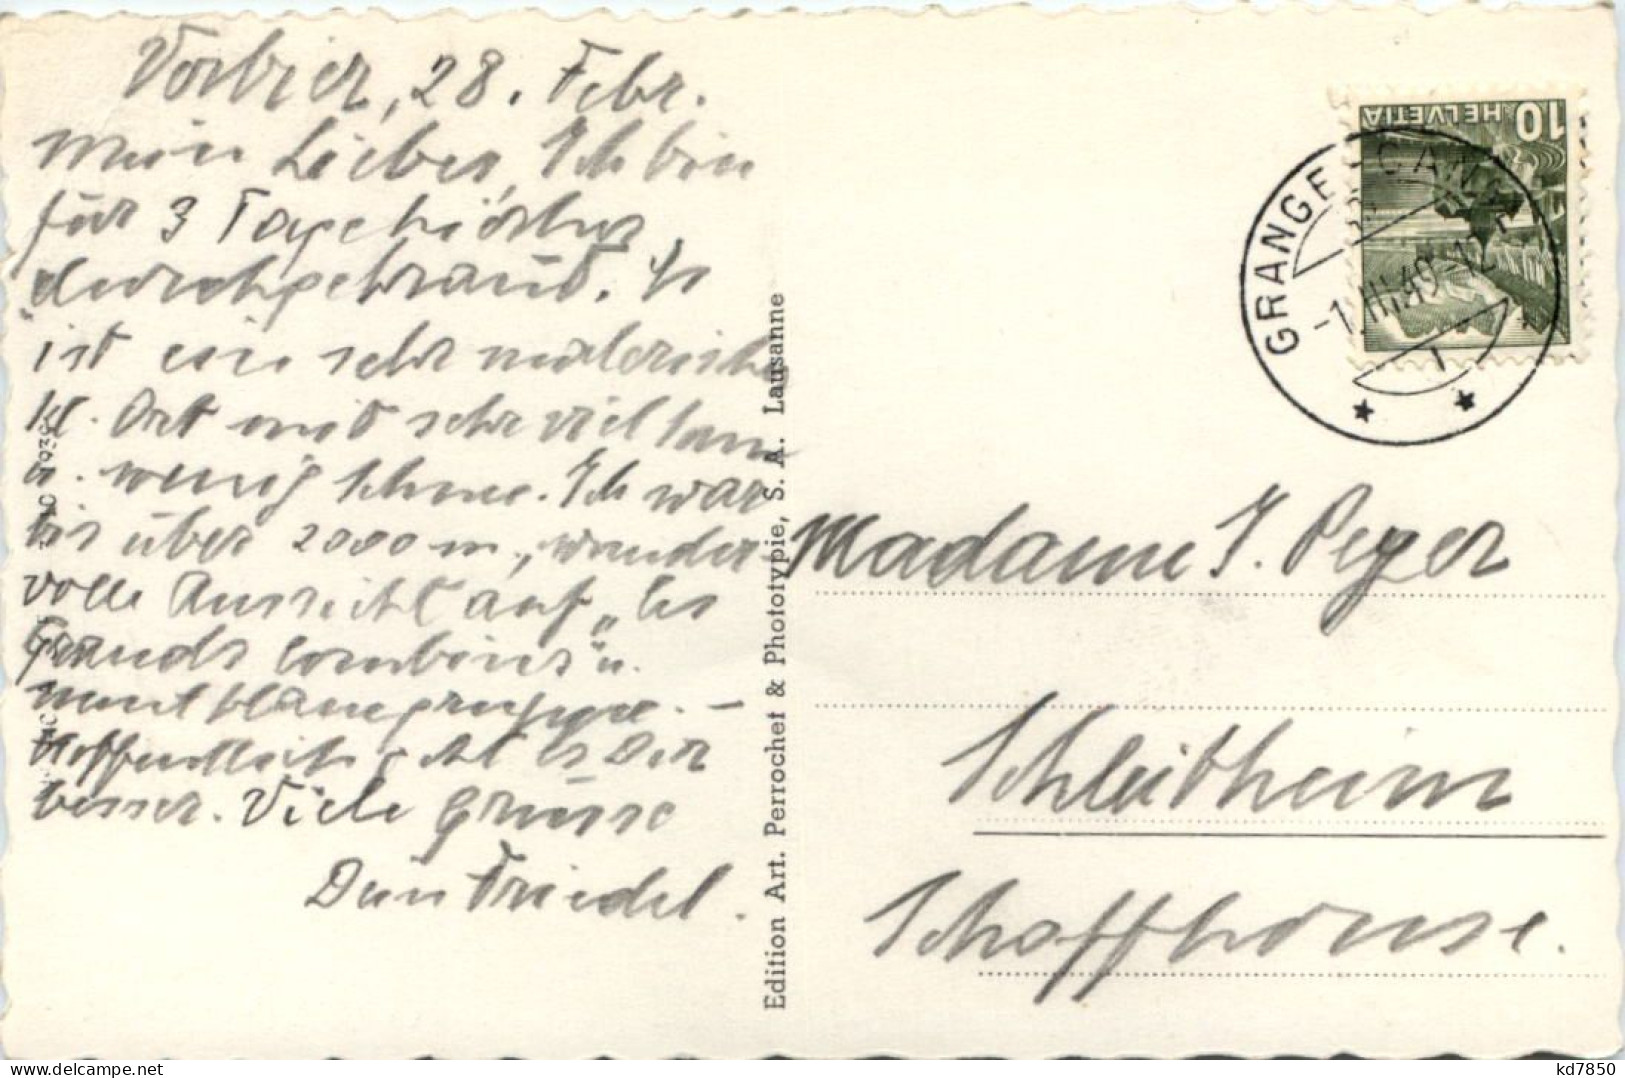 Verbier, 28. Febr.
Mein Lieber, Ich bin
für 3 Tage hierher
durchgebrannt. Es
ist ein sehr malerischer
kl. Ort mit sehr viel
u. wenig Schnee. Ich war
bis über 2000 m, wunder
volle Aussicht auf "les
Grands Combins" u.
Montblancgruppe. -
Hoffentlich geht es Dir
besser. Viele Grüsse
Dein Friedel.
Edition Art. Perrochet & Phototypie, S. A. Lausanne
10 HELVETIA
GRANGES
-1.III.49-12
Madame J. Peyer
Schleitheim
Schaffhouse.
www.delcampe.net
kd7850